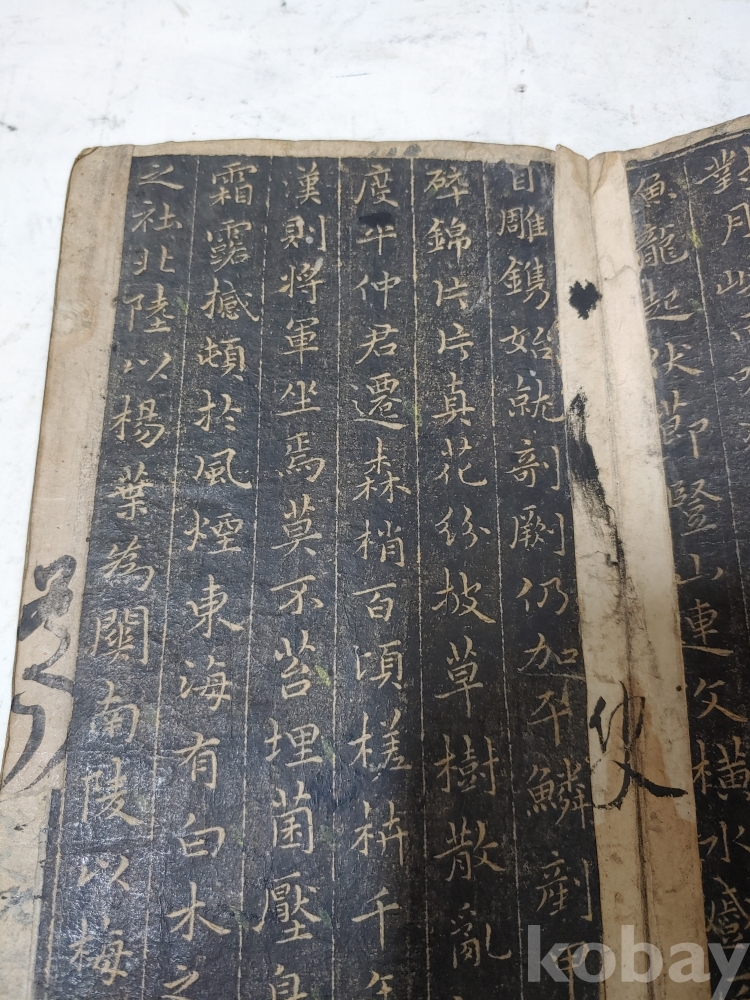 對月此
魚龍起伏節豎山連文橫水蹙
目雕鐫始就剞劂仍加平鱗剷甲
碎錦片片真花紛披草樹散亂
度平仲君遷森梢百頃槎枿千年
漢則將軍坐焉莫不苔埋菌壓鳥
霜露撼頓於風煙東海有白木之
之社北陸以楊葉為關南陵以梅
kobay